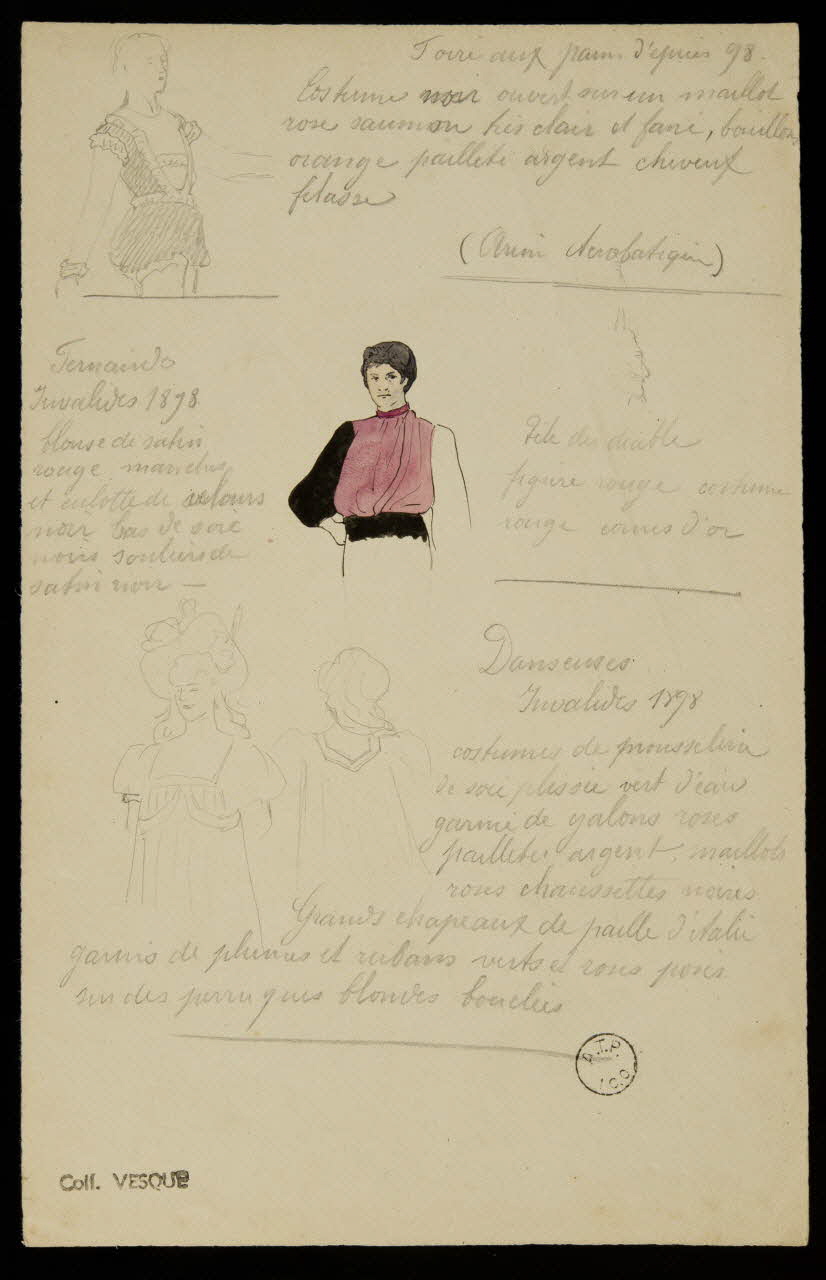 Foire aux pains d'épices 98.
Costume noir ouvert sur un maillot
rose saumon très clair et fané, bouillons
orange pailleté argent cheveux
filasse
(Arène Acrobatique)
Fernando
Invalides 1898
blouse de satin
rouge manches
et culotte de velours
noir bas de soie
noirs souliers de
satin noir —
Tête de diable
figure rouge costume
rouge cornes d'or
Danseuses
Invalides 1898
costumes de mousseline
de soie plissée vert d'eau
garnie de galons roses
pailletés argent, maillots
roses chaussettes noires
Grands chapeaux de paille d'italie
garnis de plumes et rubans verts et roses posés
sur des perruques blondes bouclées
A.T.P.
100
Coll. VESQUE